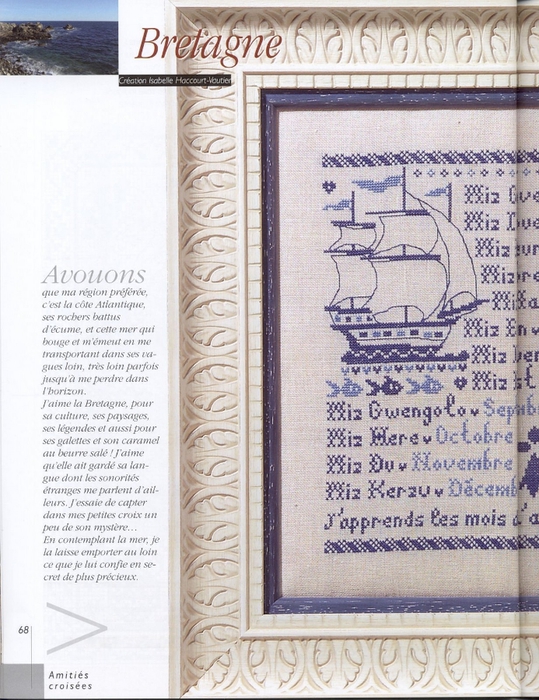 Bretagne
Création Isabelle Haccourt-Vautier
Avouons
que ma région préférée,
c'est la côte Atlantique,
ses rochers battus
d'écume, et cette mer qui
bouge et m'émeut en me
transportant dans ses va-
gues loin, très loin parfois
jusqu'à me perdre dans
l'horizon.
J'aime la Bretagne, pour
sa culture, ses paysages,
ses légendes et aussi pour
ses galettes et son caramel
au beurre salé ! J'aime
qu'elle ait gardé sa lan-
gue dont les sonorités
étranges me parlent d'ail-
leurs. J'essaie de capter
dans mes petites croix un
peu de son mystère...
En contemplant la mer, je
la laisse emporter au loin
ce que je lui confie en se-
cret de plus précieux.
Miz
Miz
Miz
Miz
Miz
Miz
Miz Gwengolo Septemb
Miz Here Octobre
Miz Du Novembre
Miz Kerzu Décemb
J'apprends les mois d'a
68
Amitiés
croisées